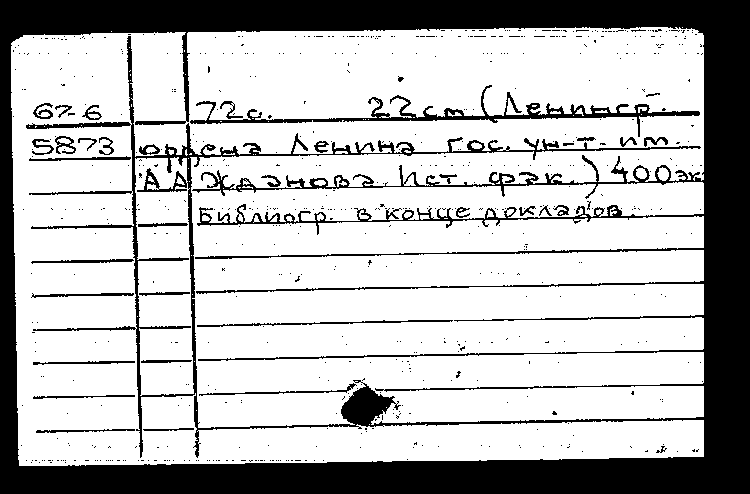 67-6 72с. 22см (Ленингр.
5873 ордена Ленина гос. ун-т. им.
А А Жданова. Ист. фак.) 400эк
Библиогр. в конце докладов.